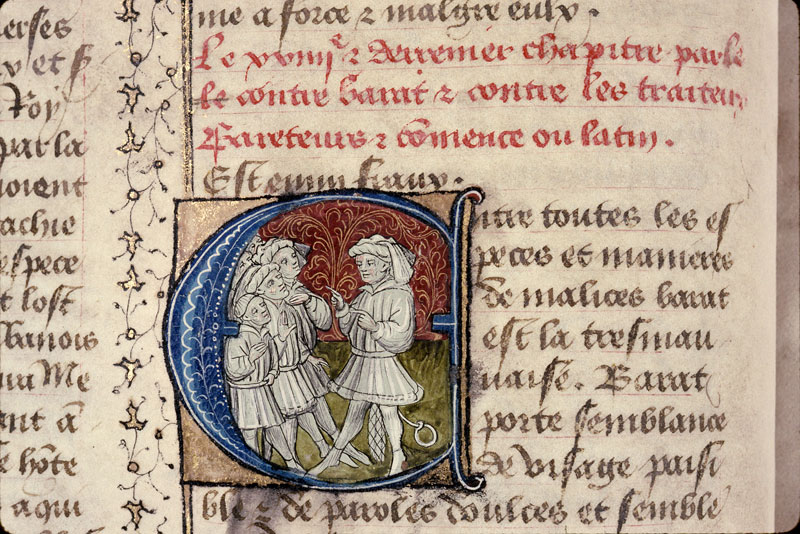 erses
v et s
Roy
par la
oient
achie
espece
t lost
banois
ma Me
ant a
e hôte
aqui
me a force ⁊ malgre eulx .
Le xviiiᵉ ⁊ derrenier chapitre parle
le contre barat ⁊ contre les traiteurs
Bareteurs ⁊ cōmence ou latin .
Est enim fraux .
Entre toutes les es
peces et manieres
de malices barat
est la tresmau
uaise . Barat
porte semblance
de visage paisi
ble ⁊ de paroles doulces et semble